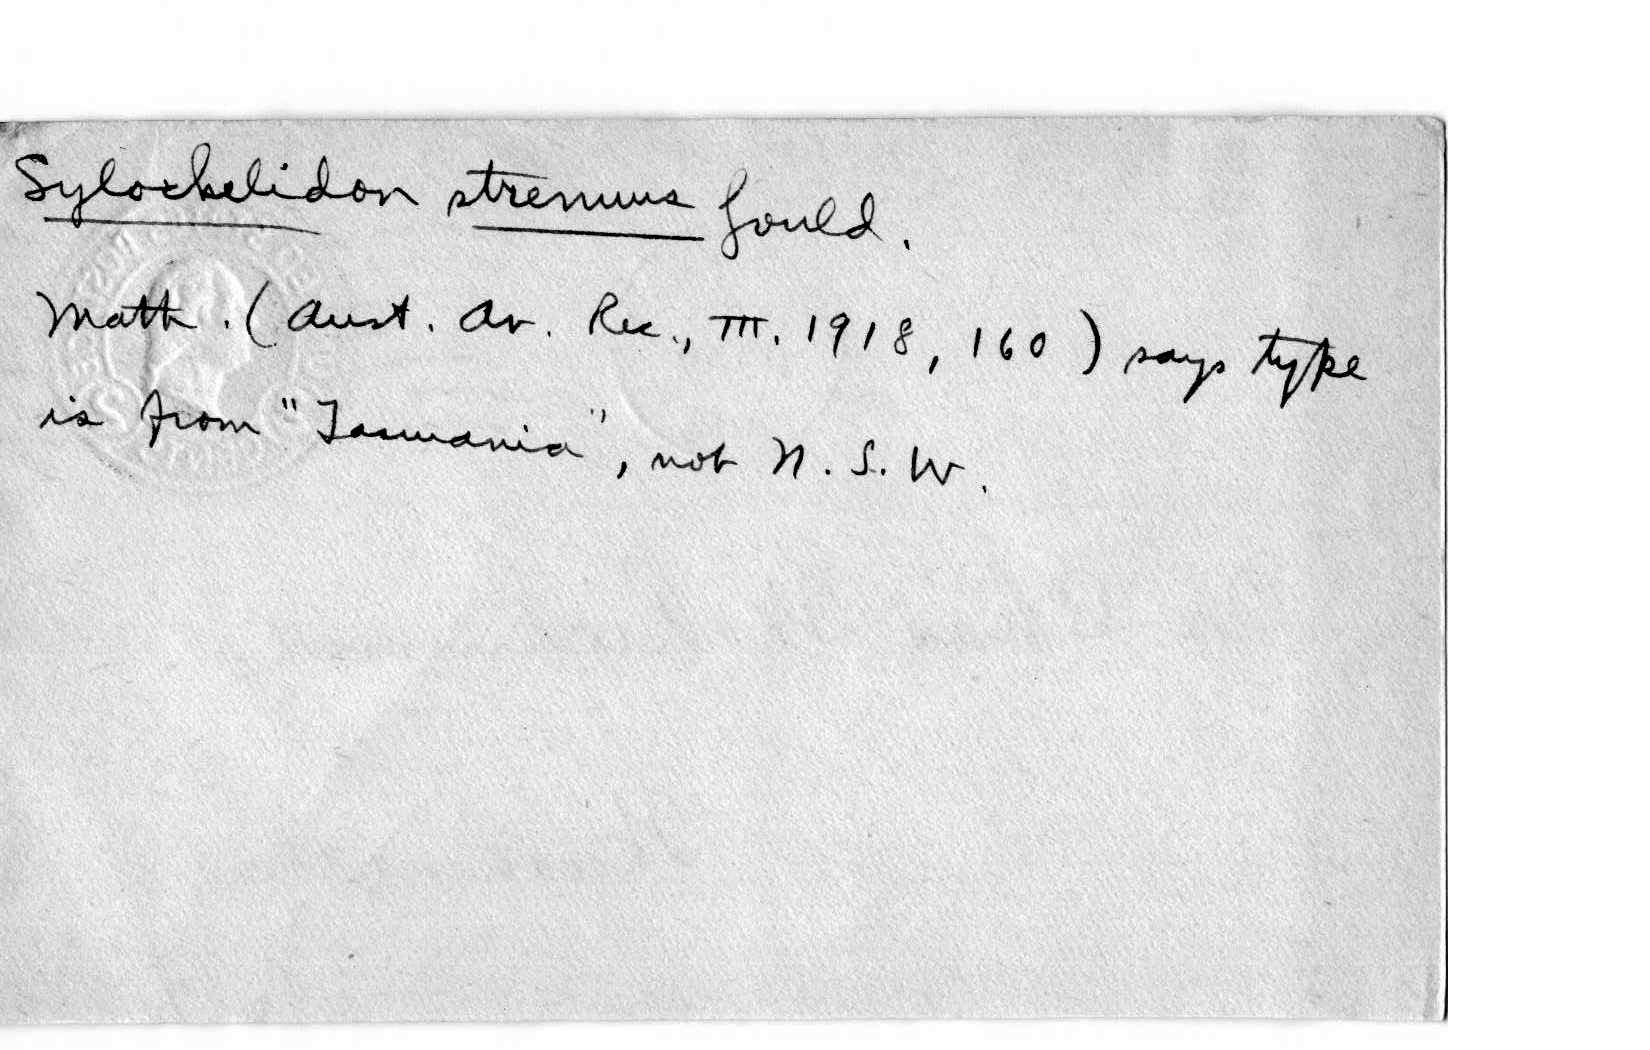 Sylochelidon strenuus Gould.
Math. (Aust. Av. Rec., III. 1918, 160) says type
is from "Tasmania", not N. S. W.